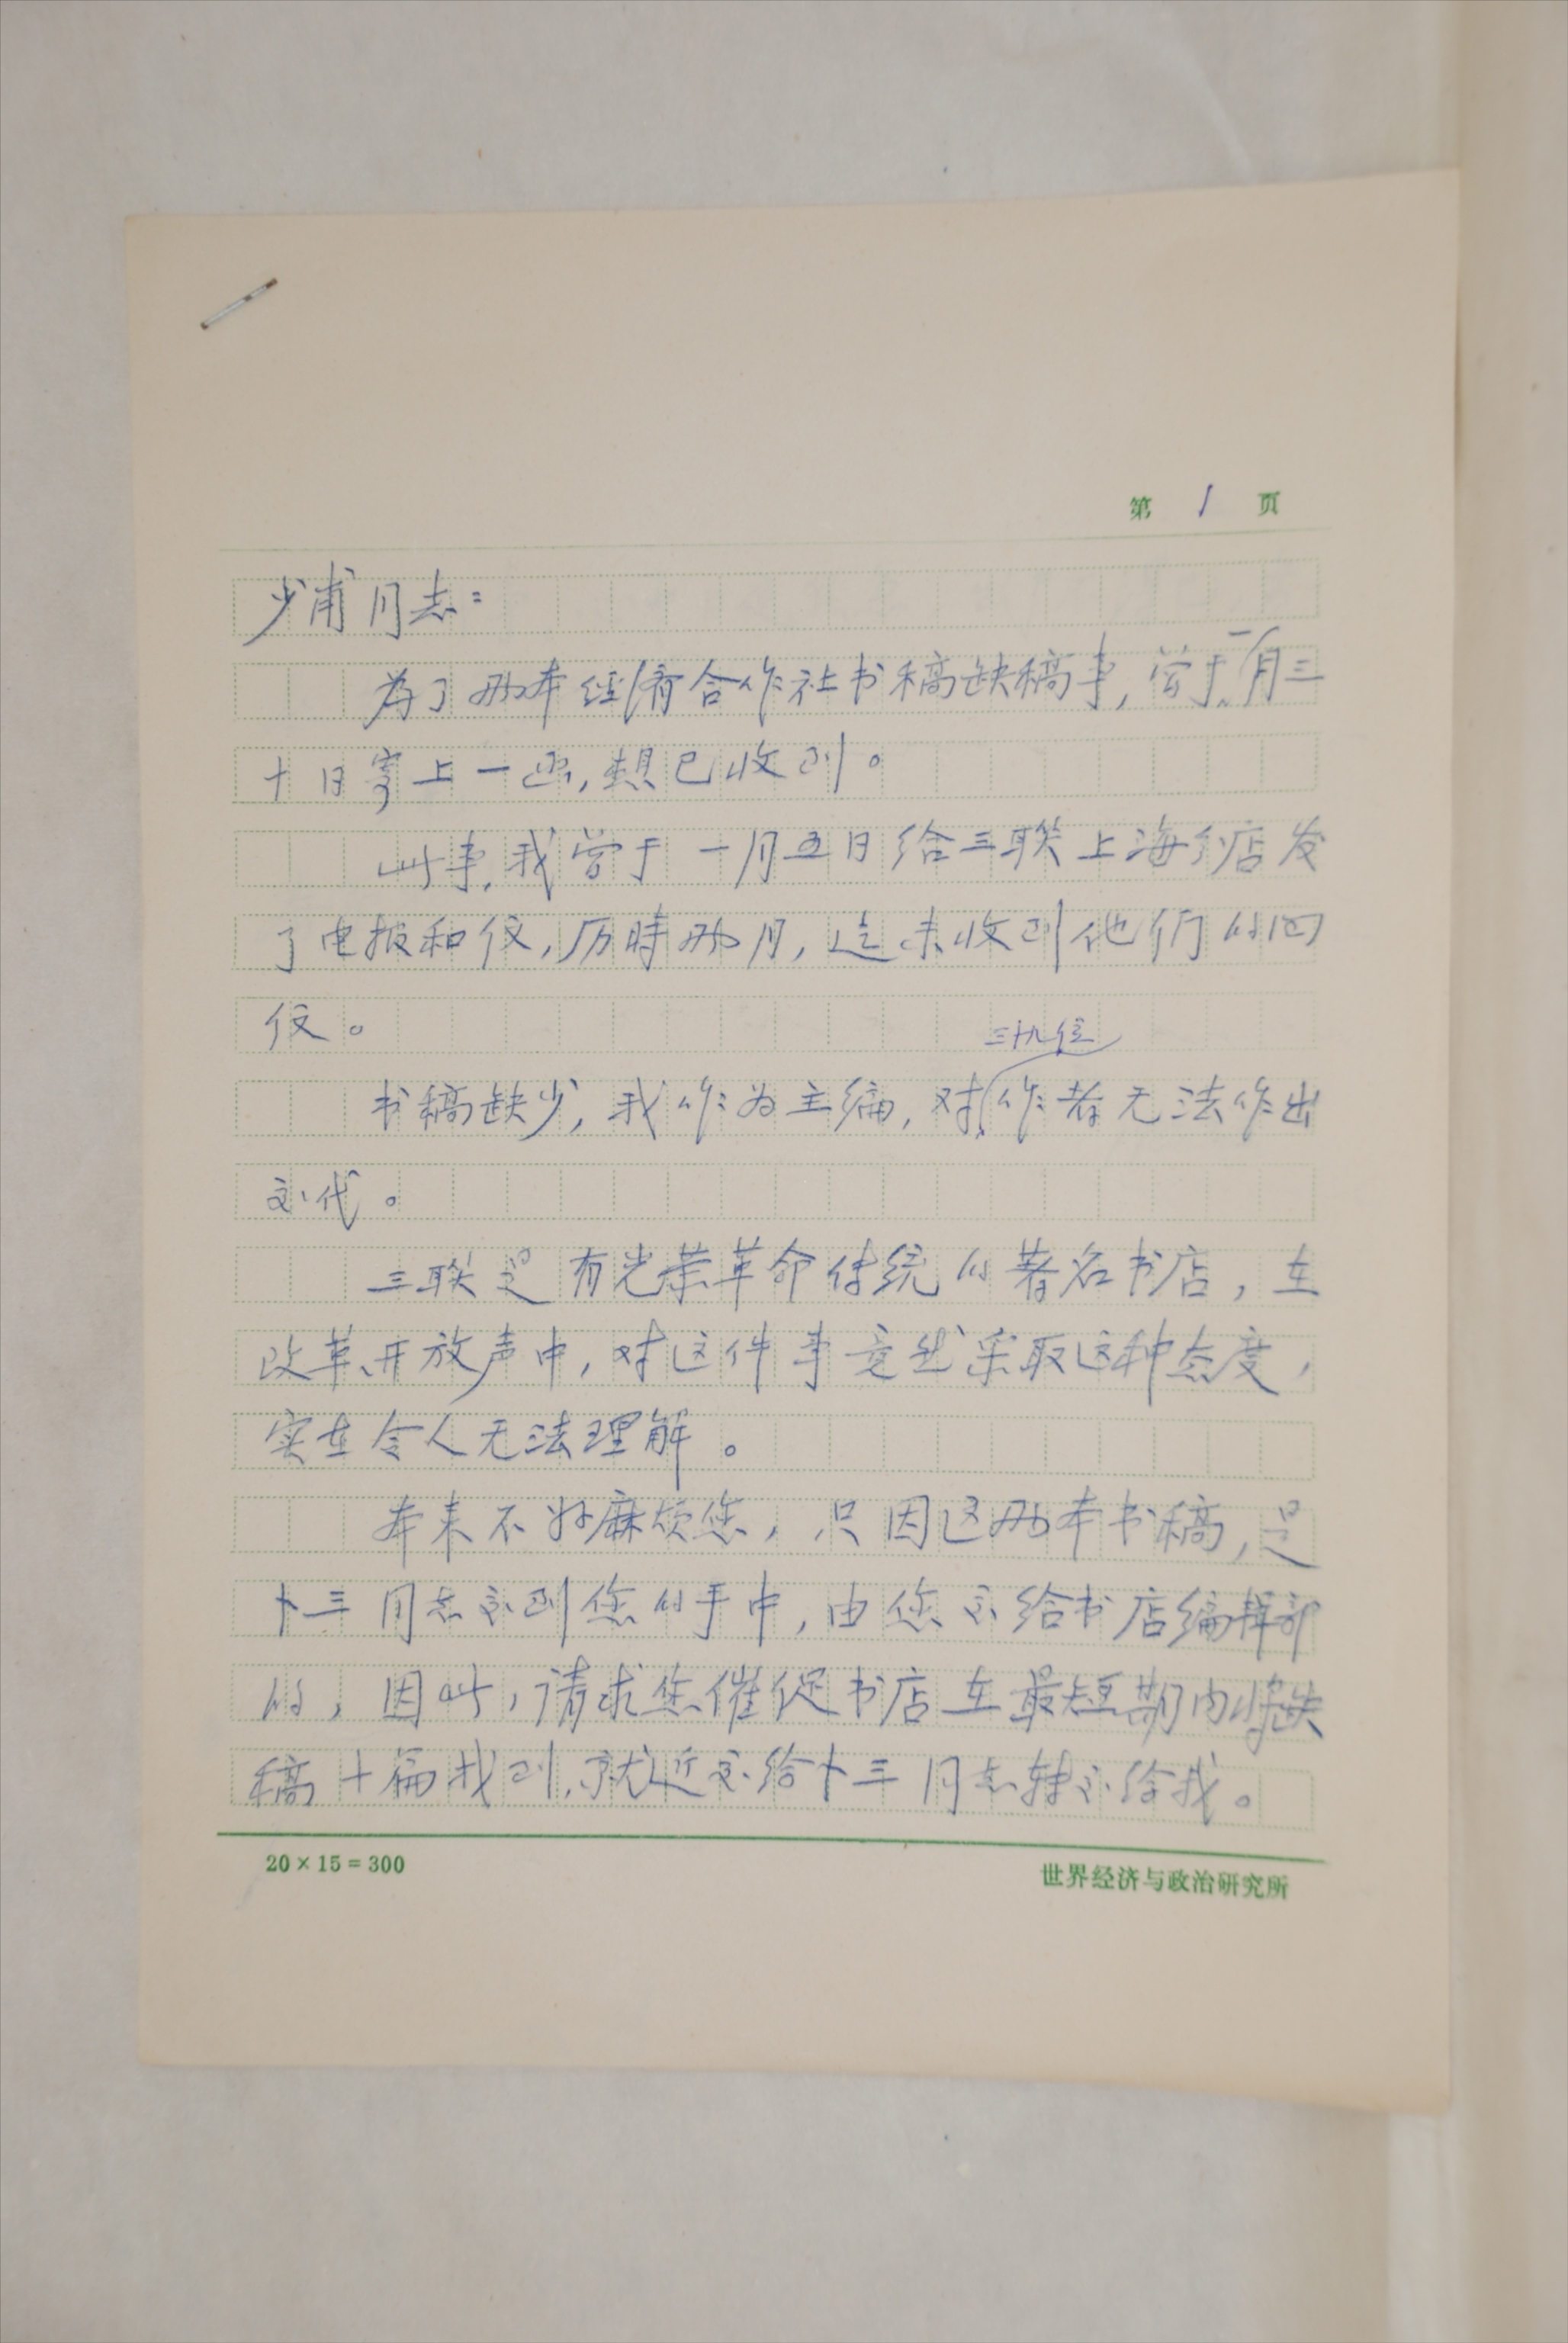 第1页
少甫同志：
为了两本经济合作社书稿缺稿事，尝于一月三
十日寄上一函，想已收到。
此事，我尝于一月五日给三联上海分店发
了电报和信，历时两月，迄未收到他们的回
信。
三十九位
书稿缺少，我作为主编，对作者无法作出
交代。
三联是有光荣革命传统的著名书店，在
改革、开放声中，对这件事竟然采取这种态度，
实在令人无法理解。
本来不好麻烦您，只因这两本书稿，是
卜三同志交到您的手中，由您交给书店编辑部
的，因此，请求您催促书店在最短期内将缺
稿十篇找到，就近交给卜三同志转交给我。
20×15=300
世界经济与政治研究所